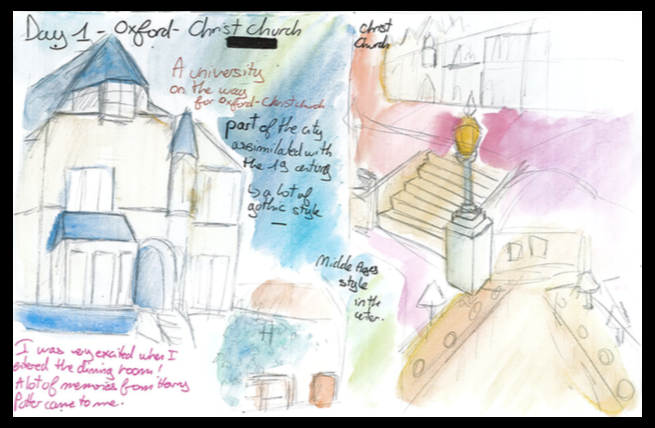 Day 1 - Oxford - Christ church
A university
on the way
for Oxford-Christchurch
part of the city
assimilated with
the 19 century
↳ a lot of
gothic style
Christ
Church
Middle Ages
style
in the
center.
I was very excited when I
entered the dining room!
A lot of memories from Harry
Potter came to me.